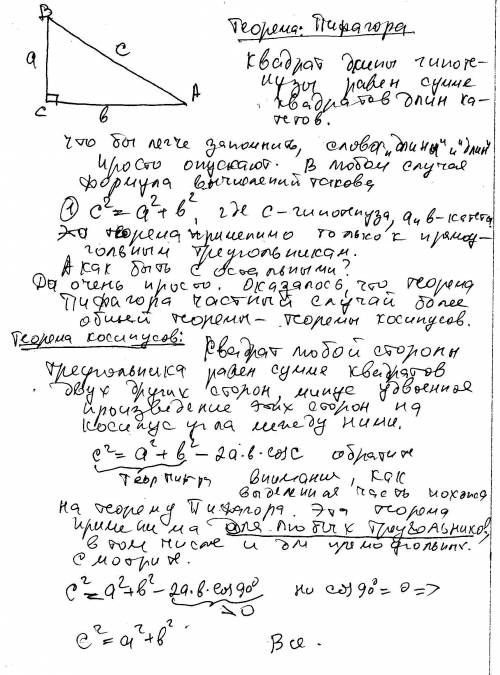 B
Теорема: Пифагора
a
c
C
b
A
Квадрат длины гипоте-
нузы равен сумме
квадратов длин ка-
тетов.
Что бы легче запомнить, слова „длины" и „длин"
просто опускают. В любом случая
формула вычислений такова
① c² = a² + b², где c - гипотенуза, a и в - катеты
Это теорема применимо только к прямоу-
гольным треугольникам.
А как быть с остальными?
Да очень просто. Оказалось, что теорема
Пифагора частный случай более
общей теоремы - теоремы косинусов.
Теорема косинусов: Квадрат любой стороны
треугольника равен сумме квадратов
двух других сторон, минус удвоенное
произведение этих сторон на
косинус угла между ними.
c² = a² + b² - 2a·b·cosC обратите
внимание, как
выделенная часть похожа
на теорему Пифагора. Эта теорема
применима для любых треугольников,
в том числе и для прямоугольных.
Смотрите.
c² = a² + b² - 2a·b·cos90° но cos90° = 0 =>
= 0
c² = a² + b². Все.